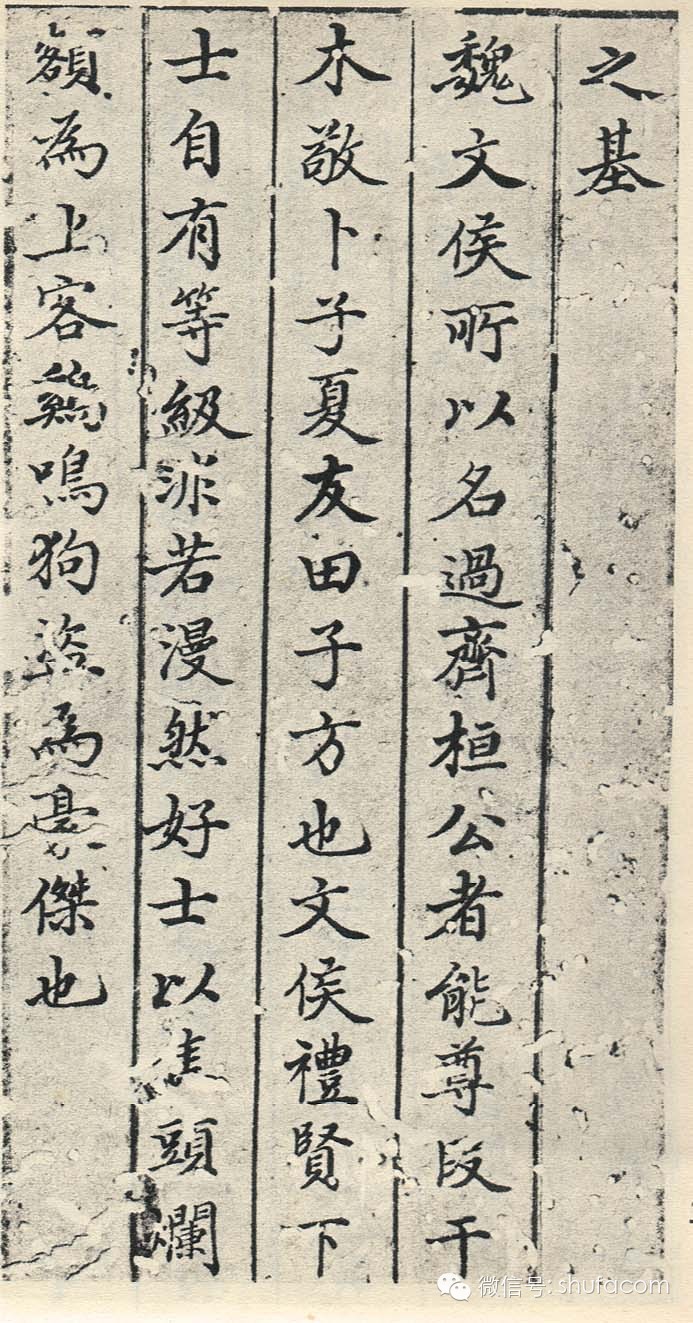 之基
魏文侯所以名過齊桓公者能尊段干
木敬卜子夏友田子方也文侯禮賢下
士自有等級非若漫然好士以焦頭爛
額為上客鷄鳴狗盜為豪傑也
微信号: shufacom